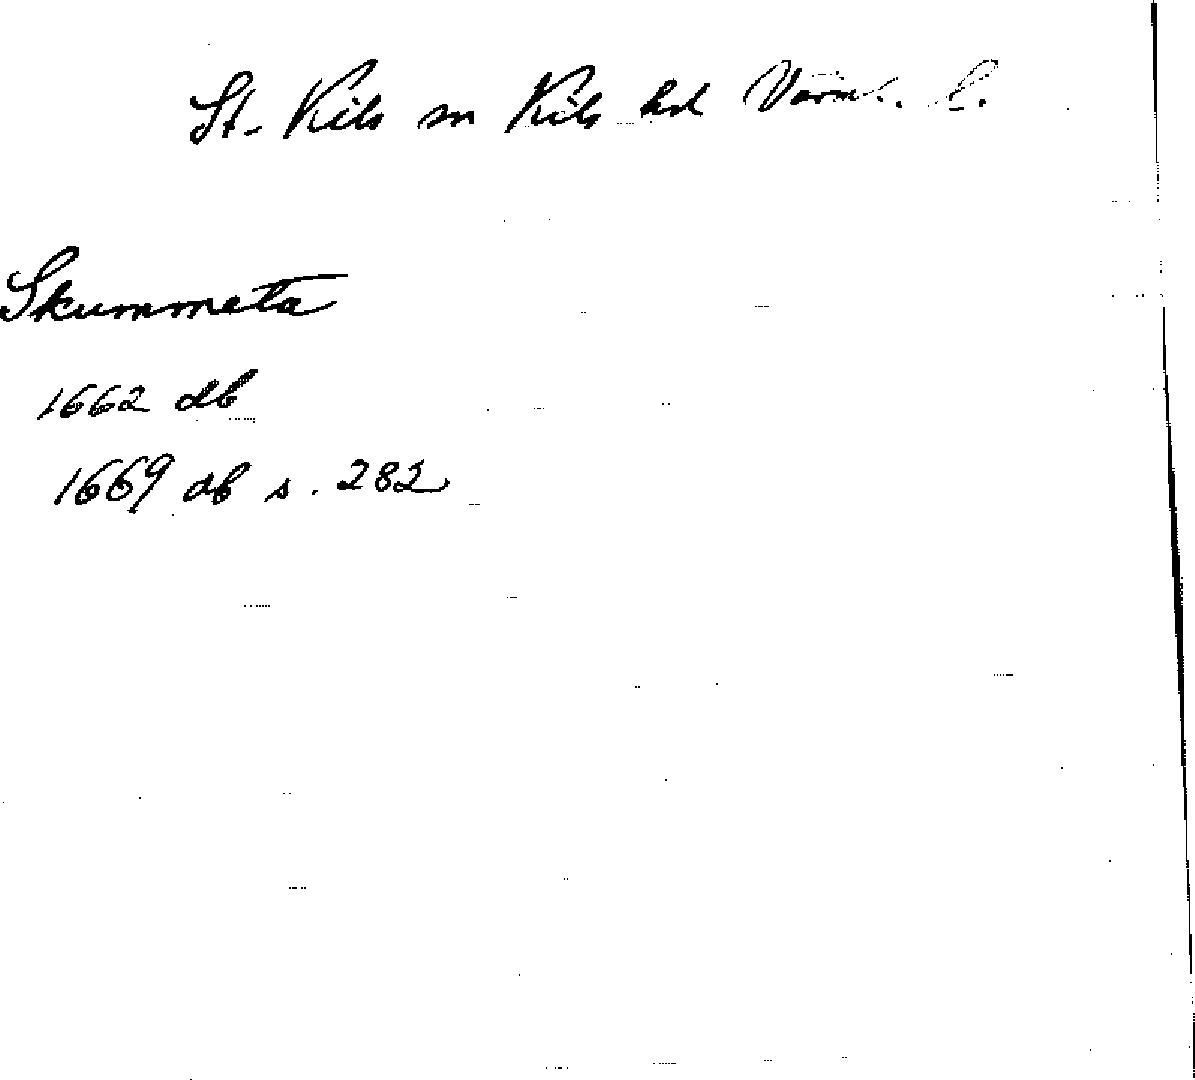 St. Kils sn Kils hd Värml. l.
Skummeta
1662 db
1669 db s. 282